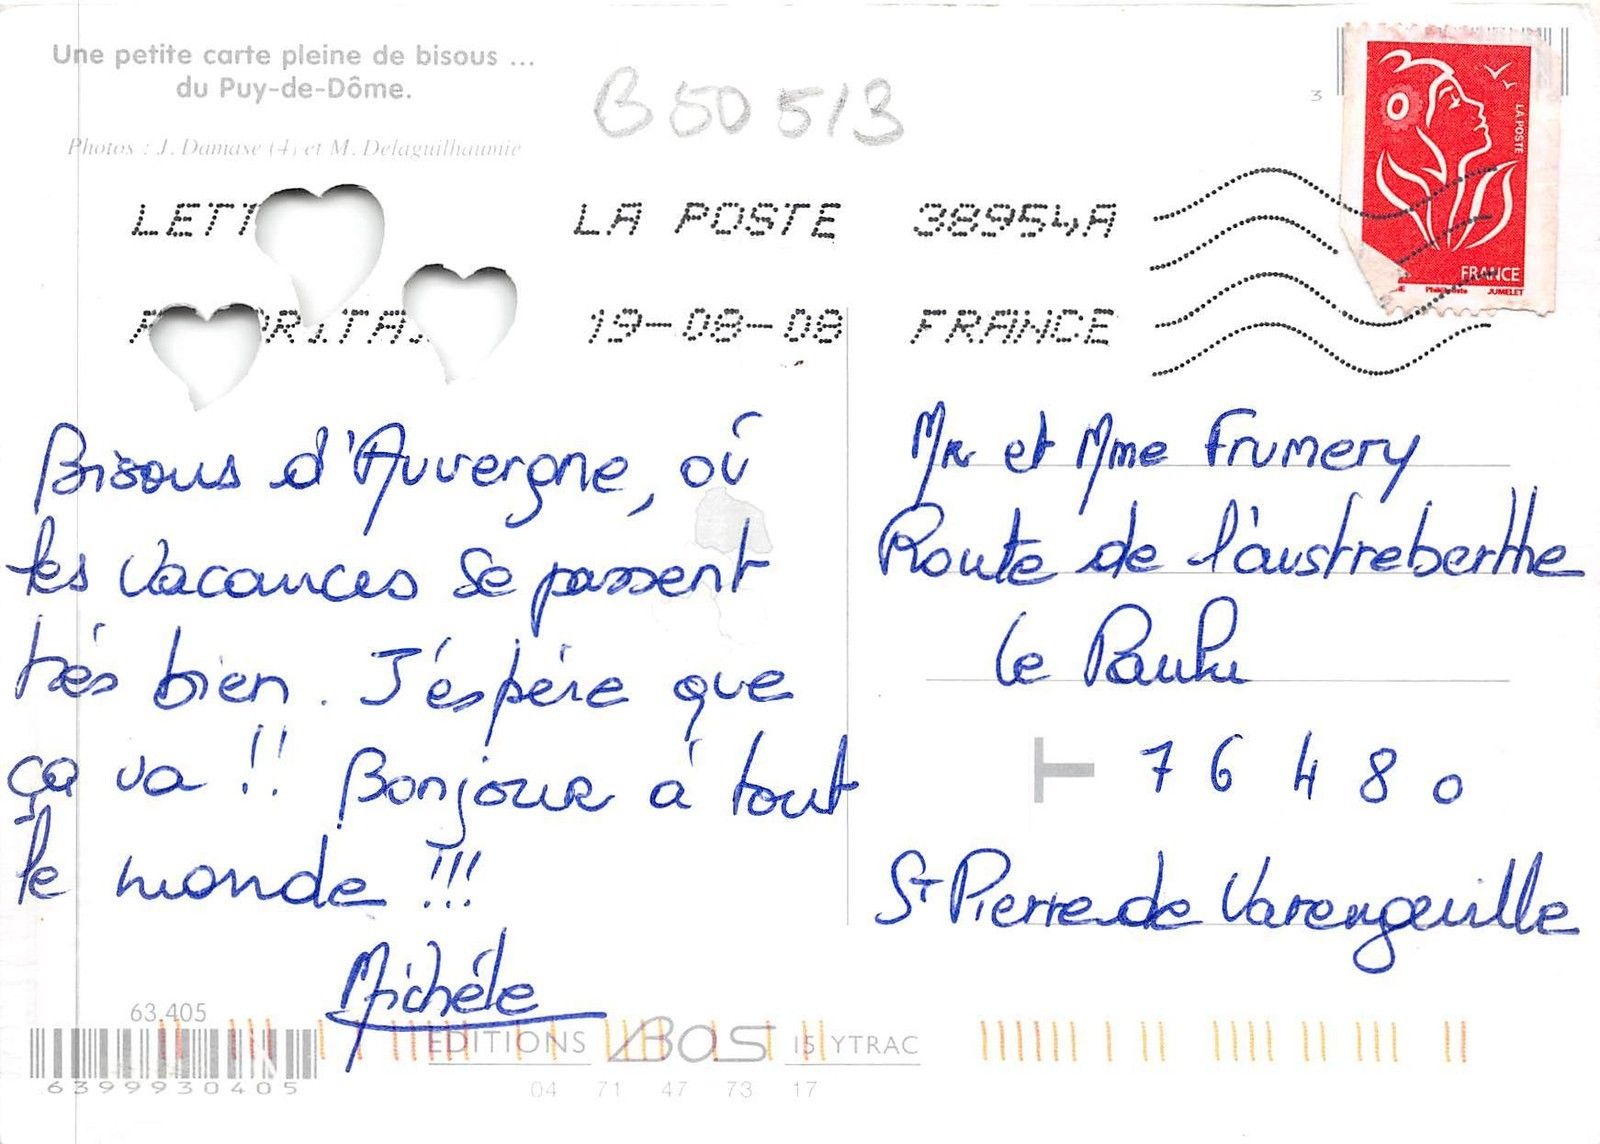 Une petite carte pleine de bisous ...
du Puy-de-Dôme.
Photos : J. Damase (4) et M. Delaguilhaumie
B50513
3
LA POSTE
FRANCE
JUMELET
LA POSTE 38954A
19-08-08 FRANCE
Bisous d'Auvergne, où
les vacances se passent
très bien. J'éspère que
ça va !! Bonjour à tout
le monde !!!
Michèle
Mr et Mme Frumery
Route de l'austreberthe
Le Paulu
76480
St Pierre de Varengeville
63.405
6399930405
EDITIONS BOS 15 YTRAC
04 71 47 73 17